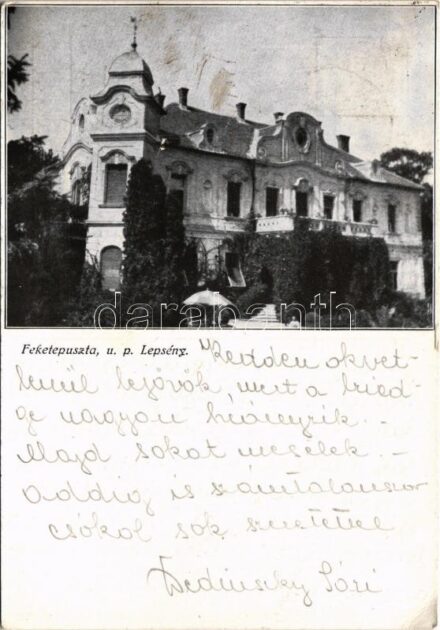 darabanth
Feketepuszta, u. p. Lepsény. Kedden okvet-
lenül lejövök, mert a bried-
ge nagyon hiányzik. -
Majd sokat mesélek. -
addig is számtalanszor
csókol sok szeretettel
Dedinszky Sári